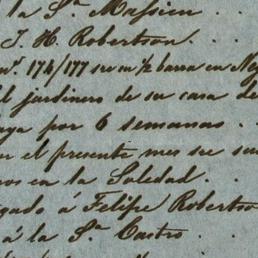 a la Sª Massieu . .
J. H. Robertson . . .
nº. 174/177 su m/ ½ barra en Neg
l jardinero de su casa de
aya por 6 semanas . . .
el presente mes su su
os en la Soledad . .
gado á Felipe Robertso
á la Sª Castro . .